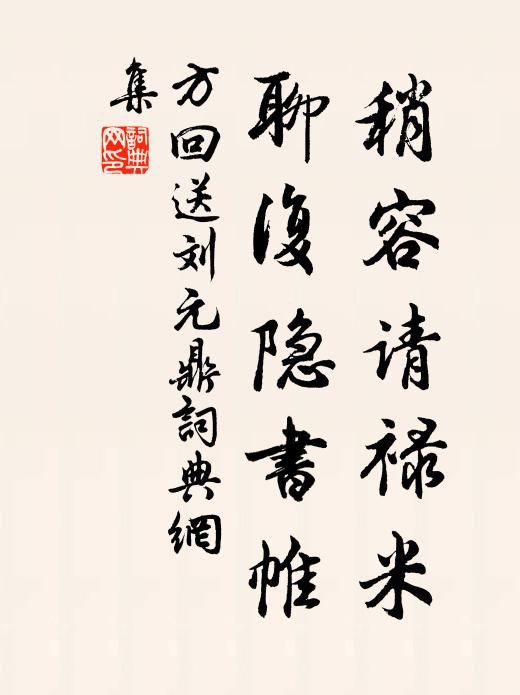 稍容请禄米
聊复隐書帷
方回送刘元鼎詞典網
集
詞典
网印